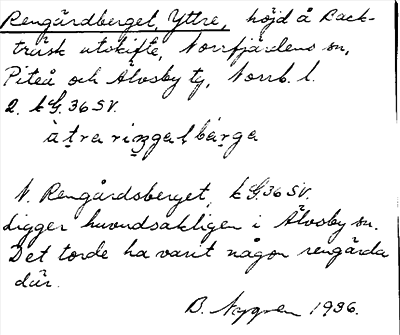 Rengårdberget, Yttre, höjd å Back-
träsk utskifte, Norrfjärdens sn,
Piteå och Älvsby tg, Norrb. l.
2. kG. 36 SV.
àtrariŋgalbärga
V. Rengårdsberget, kG. 36 SV.
Ligger huvudsakligen i Älvsby sn.
Det torde ha varit någon rengärda
där.
B. Nygren 1936.